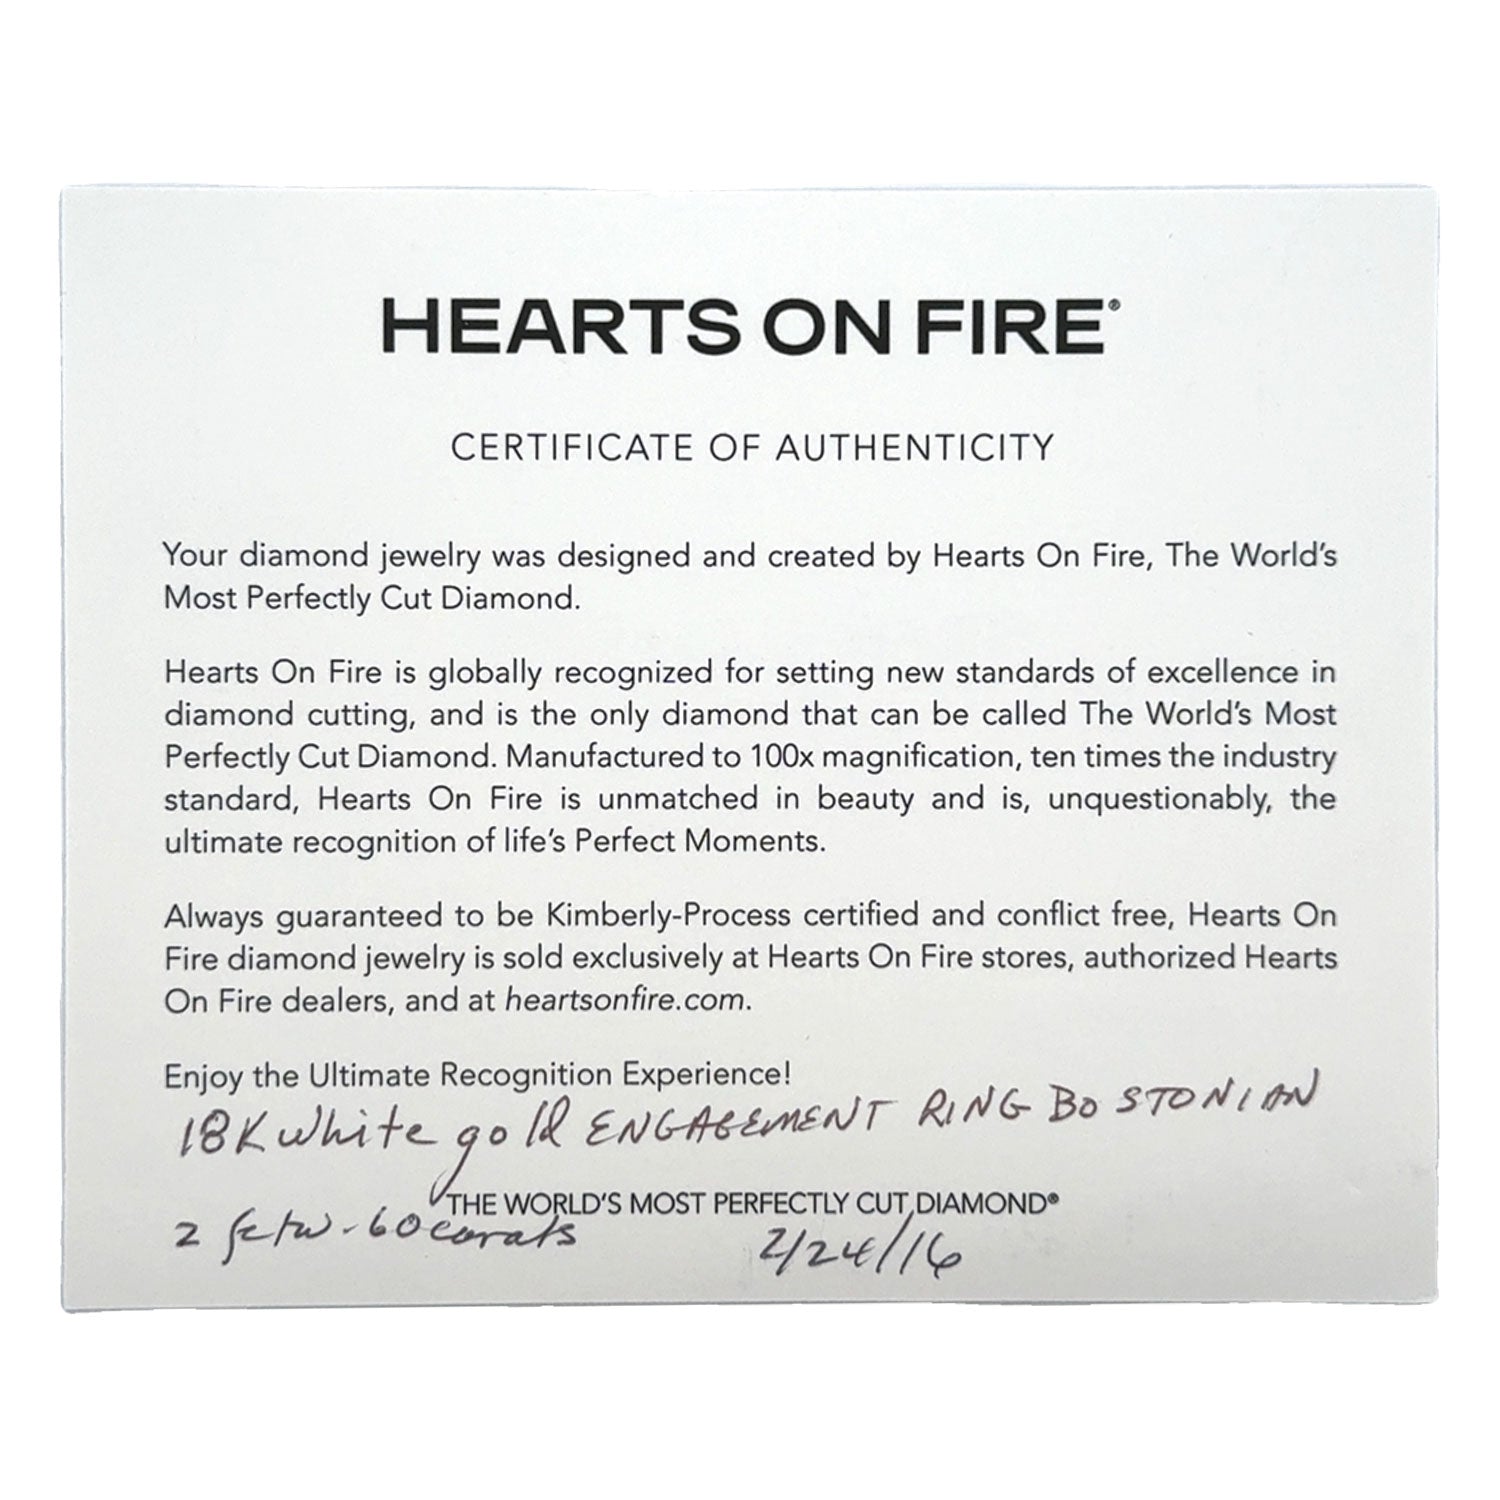 HEARTS ON FIRE®
CERTIFICATE OF AUTHENTICITY
Your diamond jewelry was designed and created by Hearts On Fire, The World's
Most Perfectly Cut Diamond.
Hearts On Fire is globally recognized for setting new standards of excellence in
diamond cutting, and is the only diamond that can be called The World's Most
Perfectly Cut Diamond. Manufactured to 100x magnification, ten times the industry
standard, Hearts On Fire is unmatched in beauty and is, unquestionably, the
ultimate recognition of life's Perfect Moments.
Always guaranteed to be Kimberly-Process certified and conflict free, Hearts On
Fire diamond jewelry is sold exclusively at Hearts On Fire stores, authorized Hearts
On Fire dealers, and at heartsonfire.com.
Enjoy the Ultimate Recognition Experience!
18K white gold ENGAGEMENT RING BOSTONIAN
THE WORLD'S MOST PERFECTLY CUT DIAMOND®
2 .60 carats 2/24/16